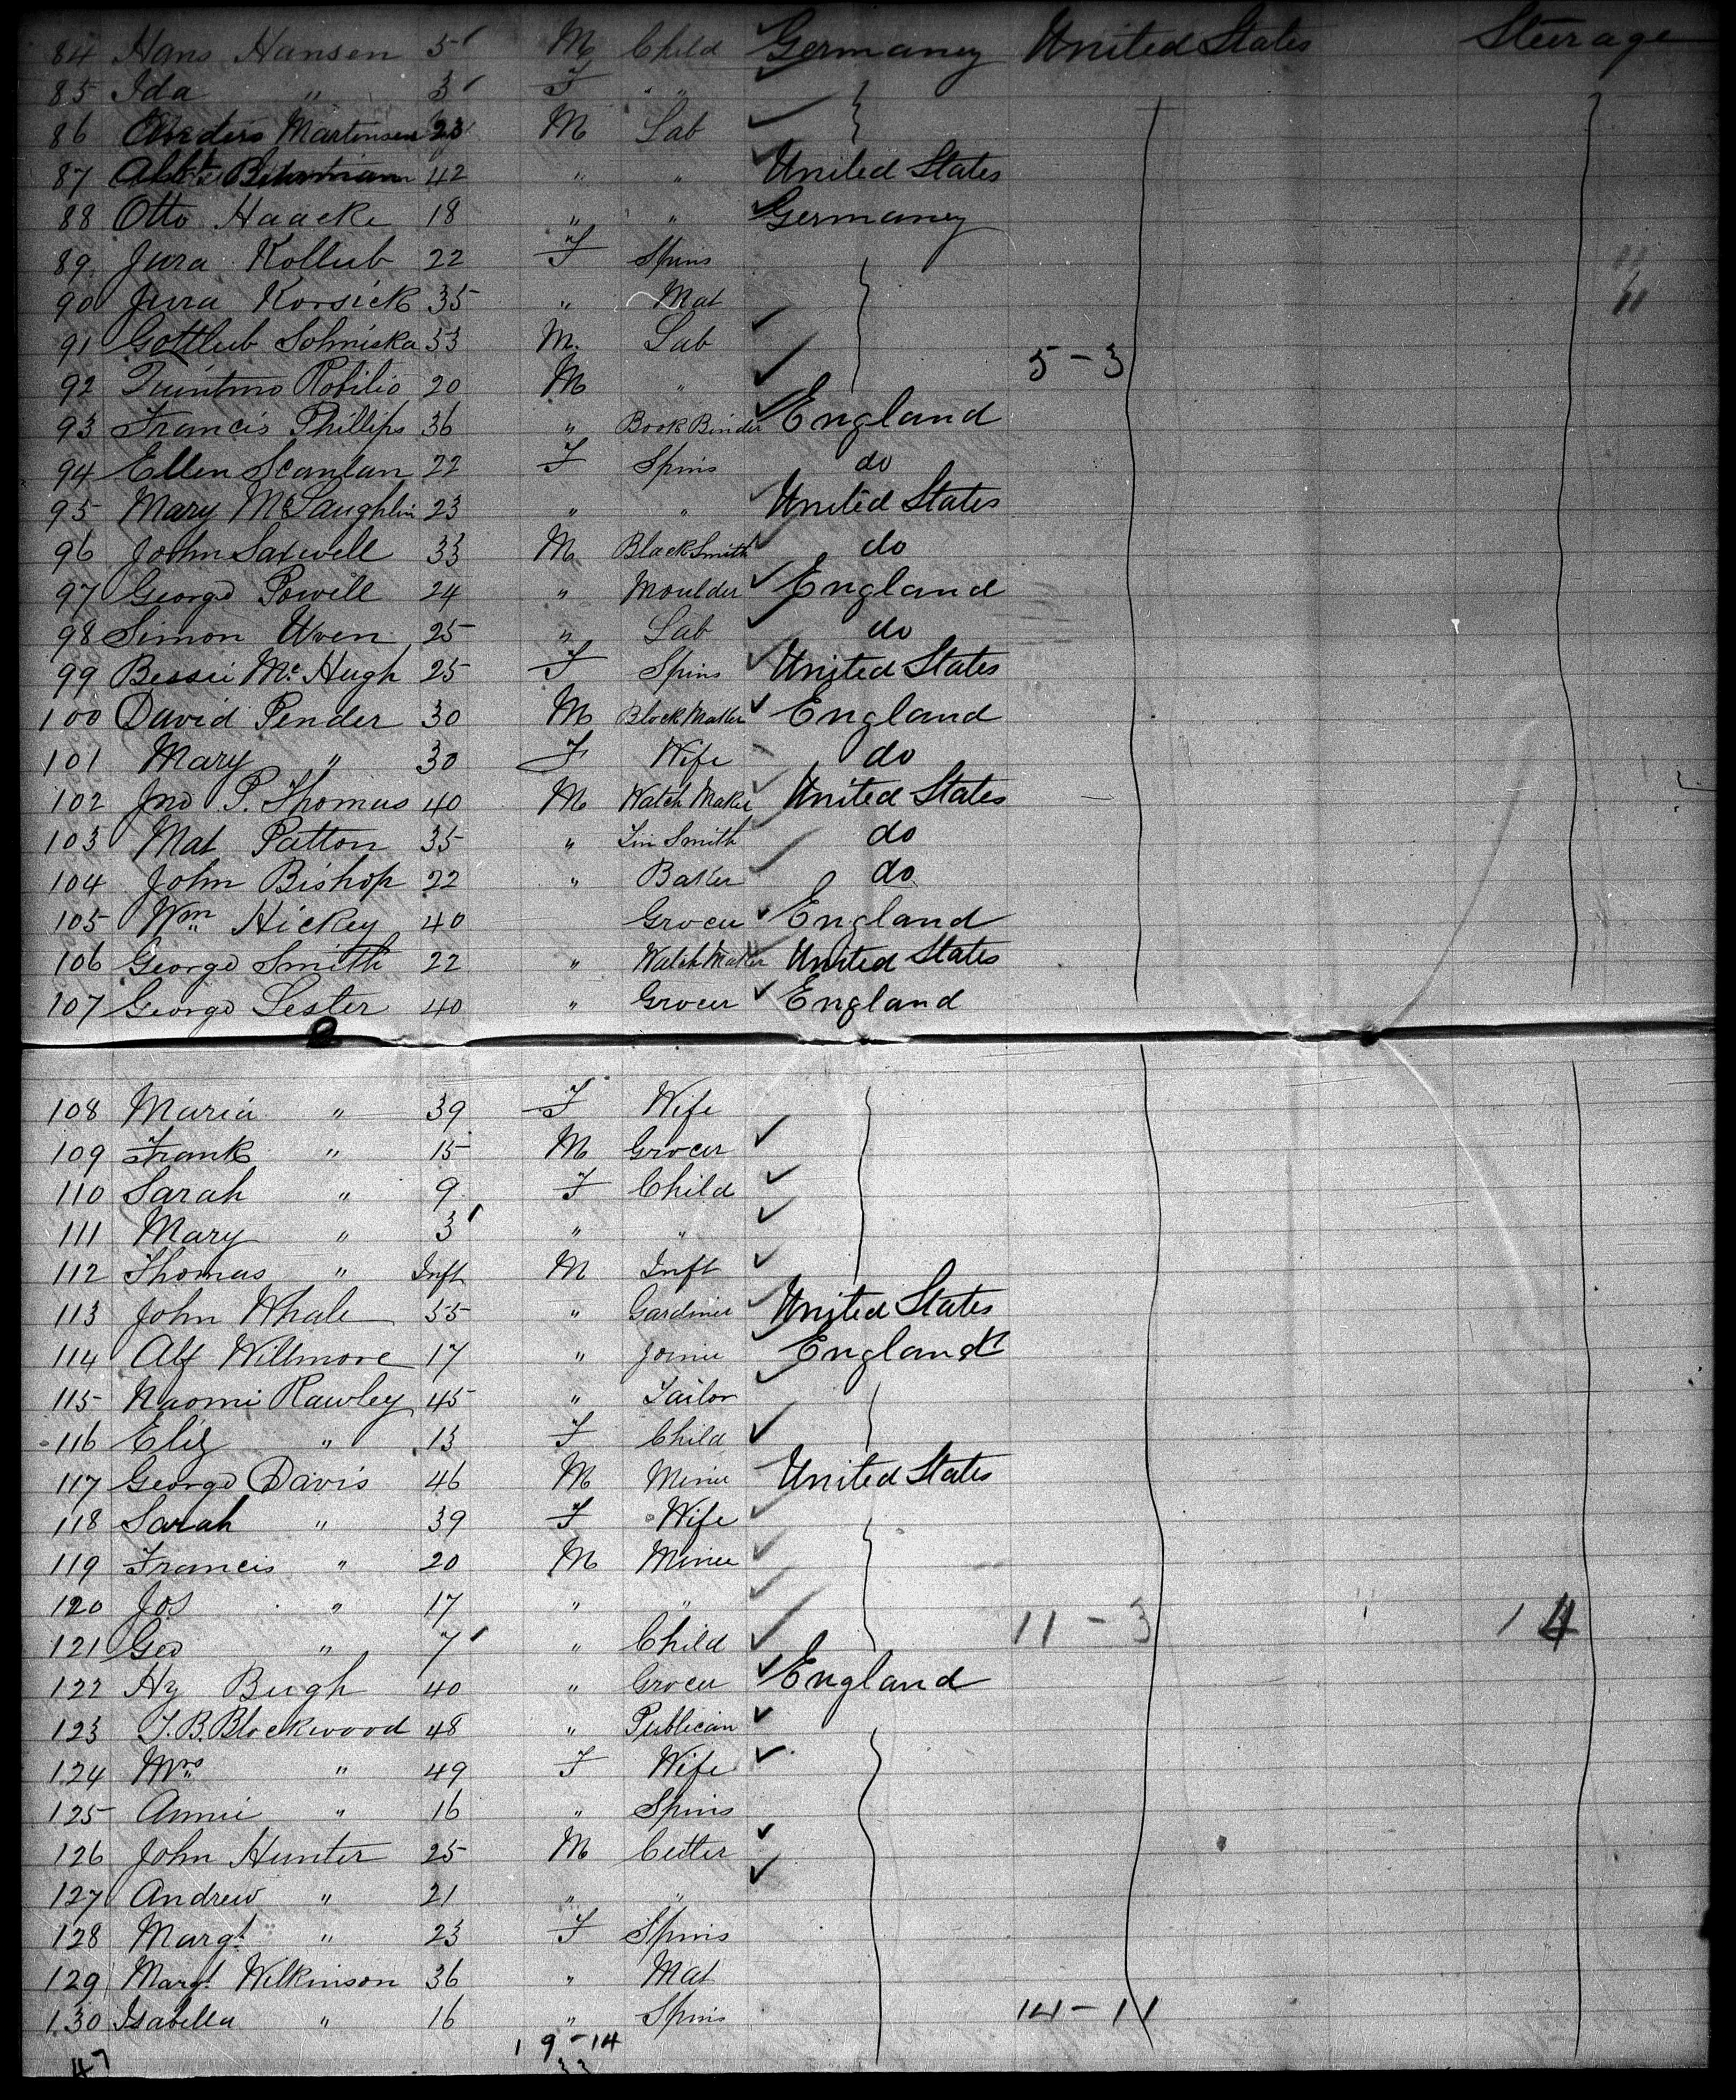 84 Hans Hansen 5 M Child Germaney United States Steerage
85 Ida " 3 F " "
86 Anders Martensen 23 M Lab
87 42 " " United States
88 Otto Haacke 18 " " Germaney
89 Jura Kollub 22 F Spins
90 Jura Korsick 35 " Mat
91 Gottlieb Sohniska 33 M. Lab
5-3
92 Robilio 20 M "
93 Francis Phillips 36 " Book Binder England
94 Ellen Scanlan 22 F Spins do
95 Mary McLaughlin 23 " " United States
96 John Saxwell 33 M BlackSmith do
97 George Powell 24 " Moulder England
98 Simon Uren 25 " Lab do
99 Bessie Mc Hugh 25 F Spins United States
100 David Pender 30 M Block Maker England
101 Mary " 30 F Wife do
102 Jno P. Thomas 40 M Watch Maker United States
103 Mat Patton 35 " Tin Smith do
104 John Bishop 22 " Baker do
105 Wm Hickey 40 Grocer England
106 George Smith 22 " Watch Maker United States
107 George Lester 40 " Grocer England
108 Maria " 39 F Wife
109 Frank " 15 M Grocer
110 Sarah " 9 F Child
111 Mary " 3 " "
112 Thomas " Inft M Inft
113 John Whale 55 " Gardiner United States
114 Alf Willmore 17 " Joiner England
115 Naomi Rawley 45 " Tailor
116 Eliz " 13 F Child
117 George Davis 46 M Miner United States
118 Sarah " 39 F Wife
119 Francis " 20 M Miner
120 Jos " 17 " "
11-3 14
121 Geo " 7 " Child
122 Hy Bugh 40 " Grocer England
123 T.B. Blockwood 48 " Publican
124 Mrs " 49 F Wife
125 Annie " 16 " Spins
126 John Hunter 25 M Cutler
127 Andrew " 21 " "
128 Margt " 23 F Spins
129 Margt Wilkinson 36 " Mat
130 Isabella " 16 " Spins 14-11
19-14
47 33